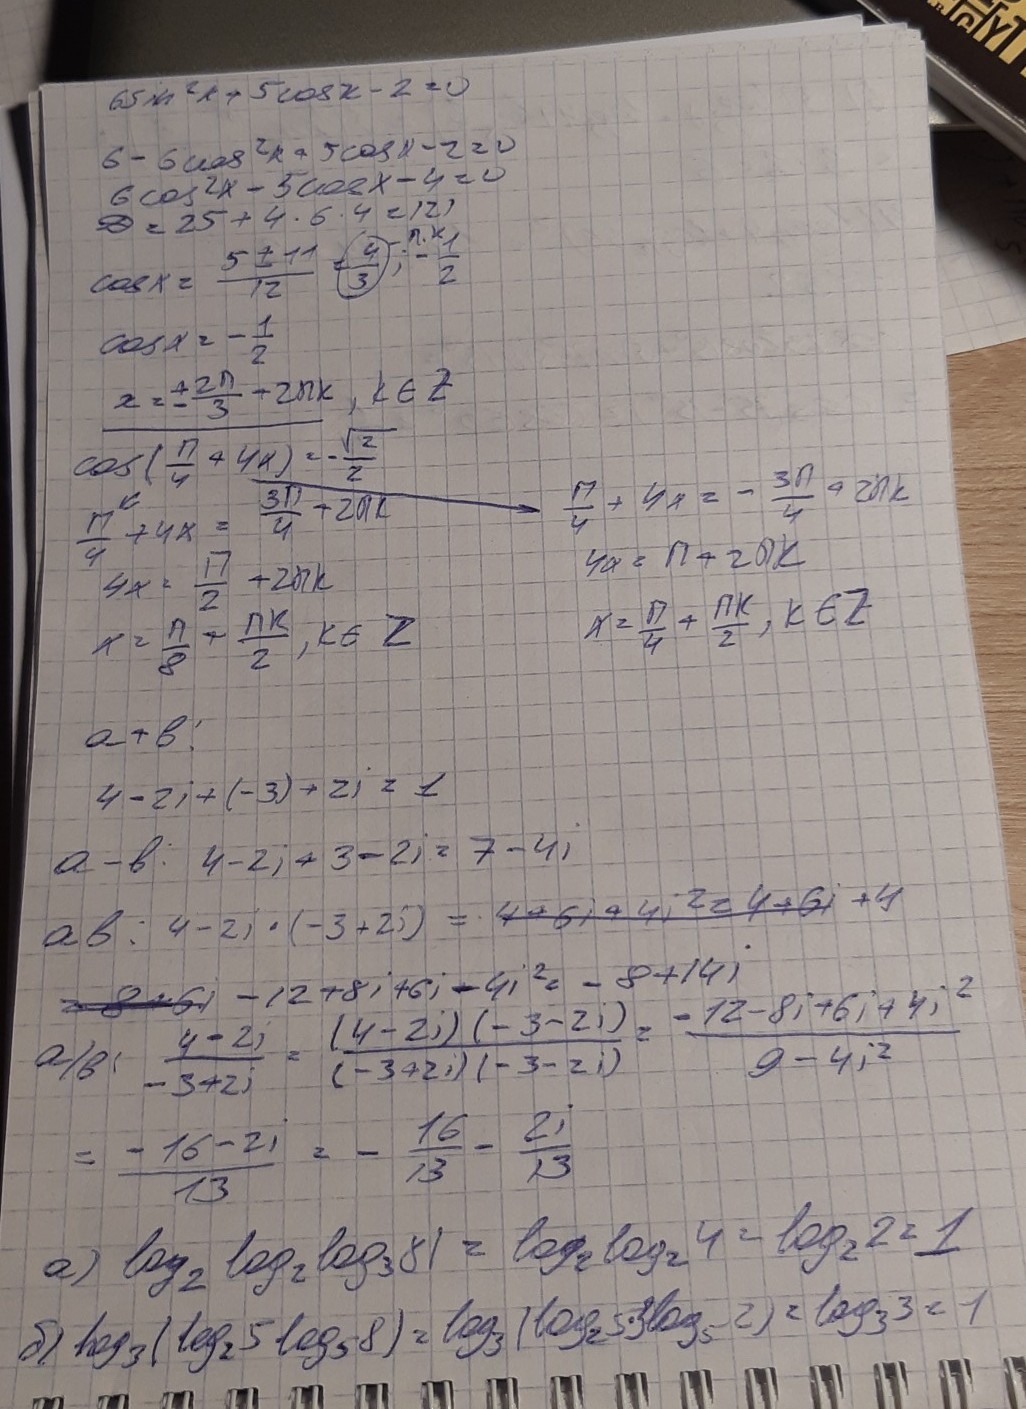 6sin²x + 5cosx - 2 = 0
6 - 6cos²x + 5cosx - 2 = 0
6cos²x - 5cosx - 4 = 0
D = 25 + 4·6·4 = 121
cosx = (5 ± 11)/12 = 4/3; п.к - 1/2
cosx = - 1/2
x = ± 2π/3 + 2πk, k ∈ Z
cos(π/4 + 4x) = - √2/2
π/4 + 4x = 3π/4 + 2πk
4x = π/2 + 2πk
x = π/8 + πk/2, k ∈ Z
π/4 + 4x = - 3π/4 + 2πk
4x = π + 2πk
x = π/4 + πk/2, k ∈ Z
a + b:
4 - 2i + (-3) + 2i = 1
a - b: 4 - 2i + 3 - 2i = 7 - 4i
ab: 4 - 2i · (-3 + 2i) = 4 + 6i + 4i² = 4 + 6i + 4
= 8 + 6i - 12 + 8i + 6i - 4i² = - 8 + 14i
a/b: (4 - 2i)/(-3 + 2i) = (4 - 2i)(-3 - 2i)/(-3 + 2i)(-3 - 2i) = (-12 - 8i + 6i + 4i²)/(9 - 4i²)
= (-16 - 2i)/13 = - 16/13 - 2i/13
а) log₂ log₂ log₃ 81 = log₂ log₂ 4 = log₂ 2 = 1
б) log₃(log₂5 log₅8) = log₃(log₂5·3log₅2) = log₃3 = 1